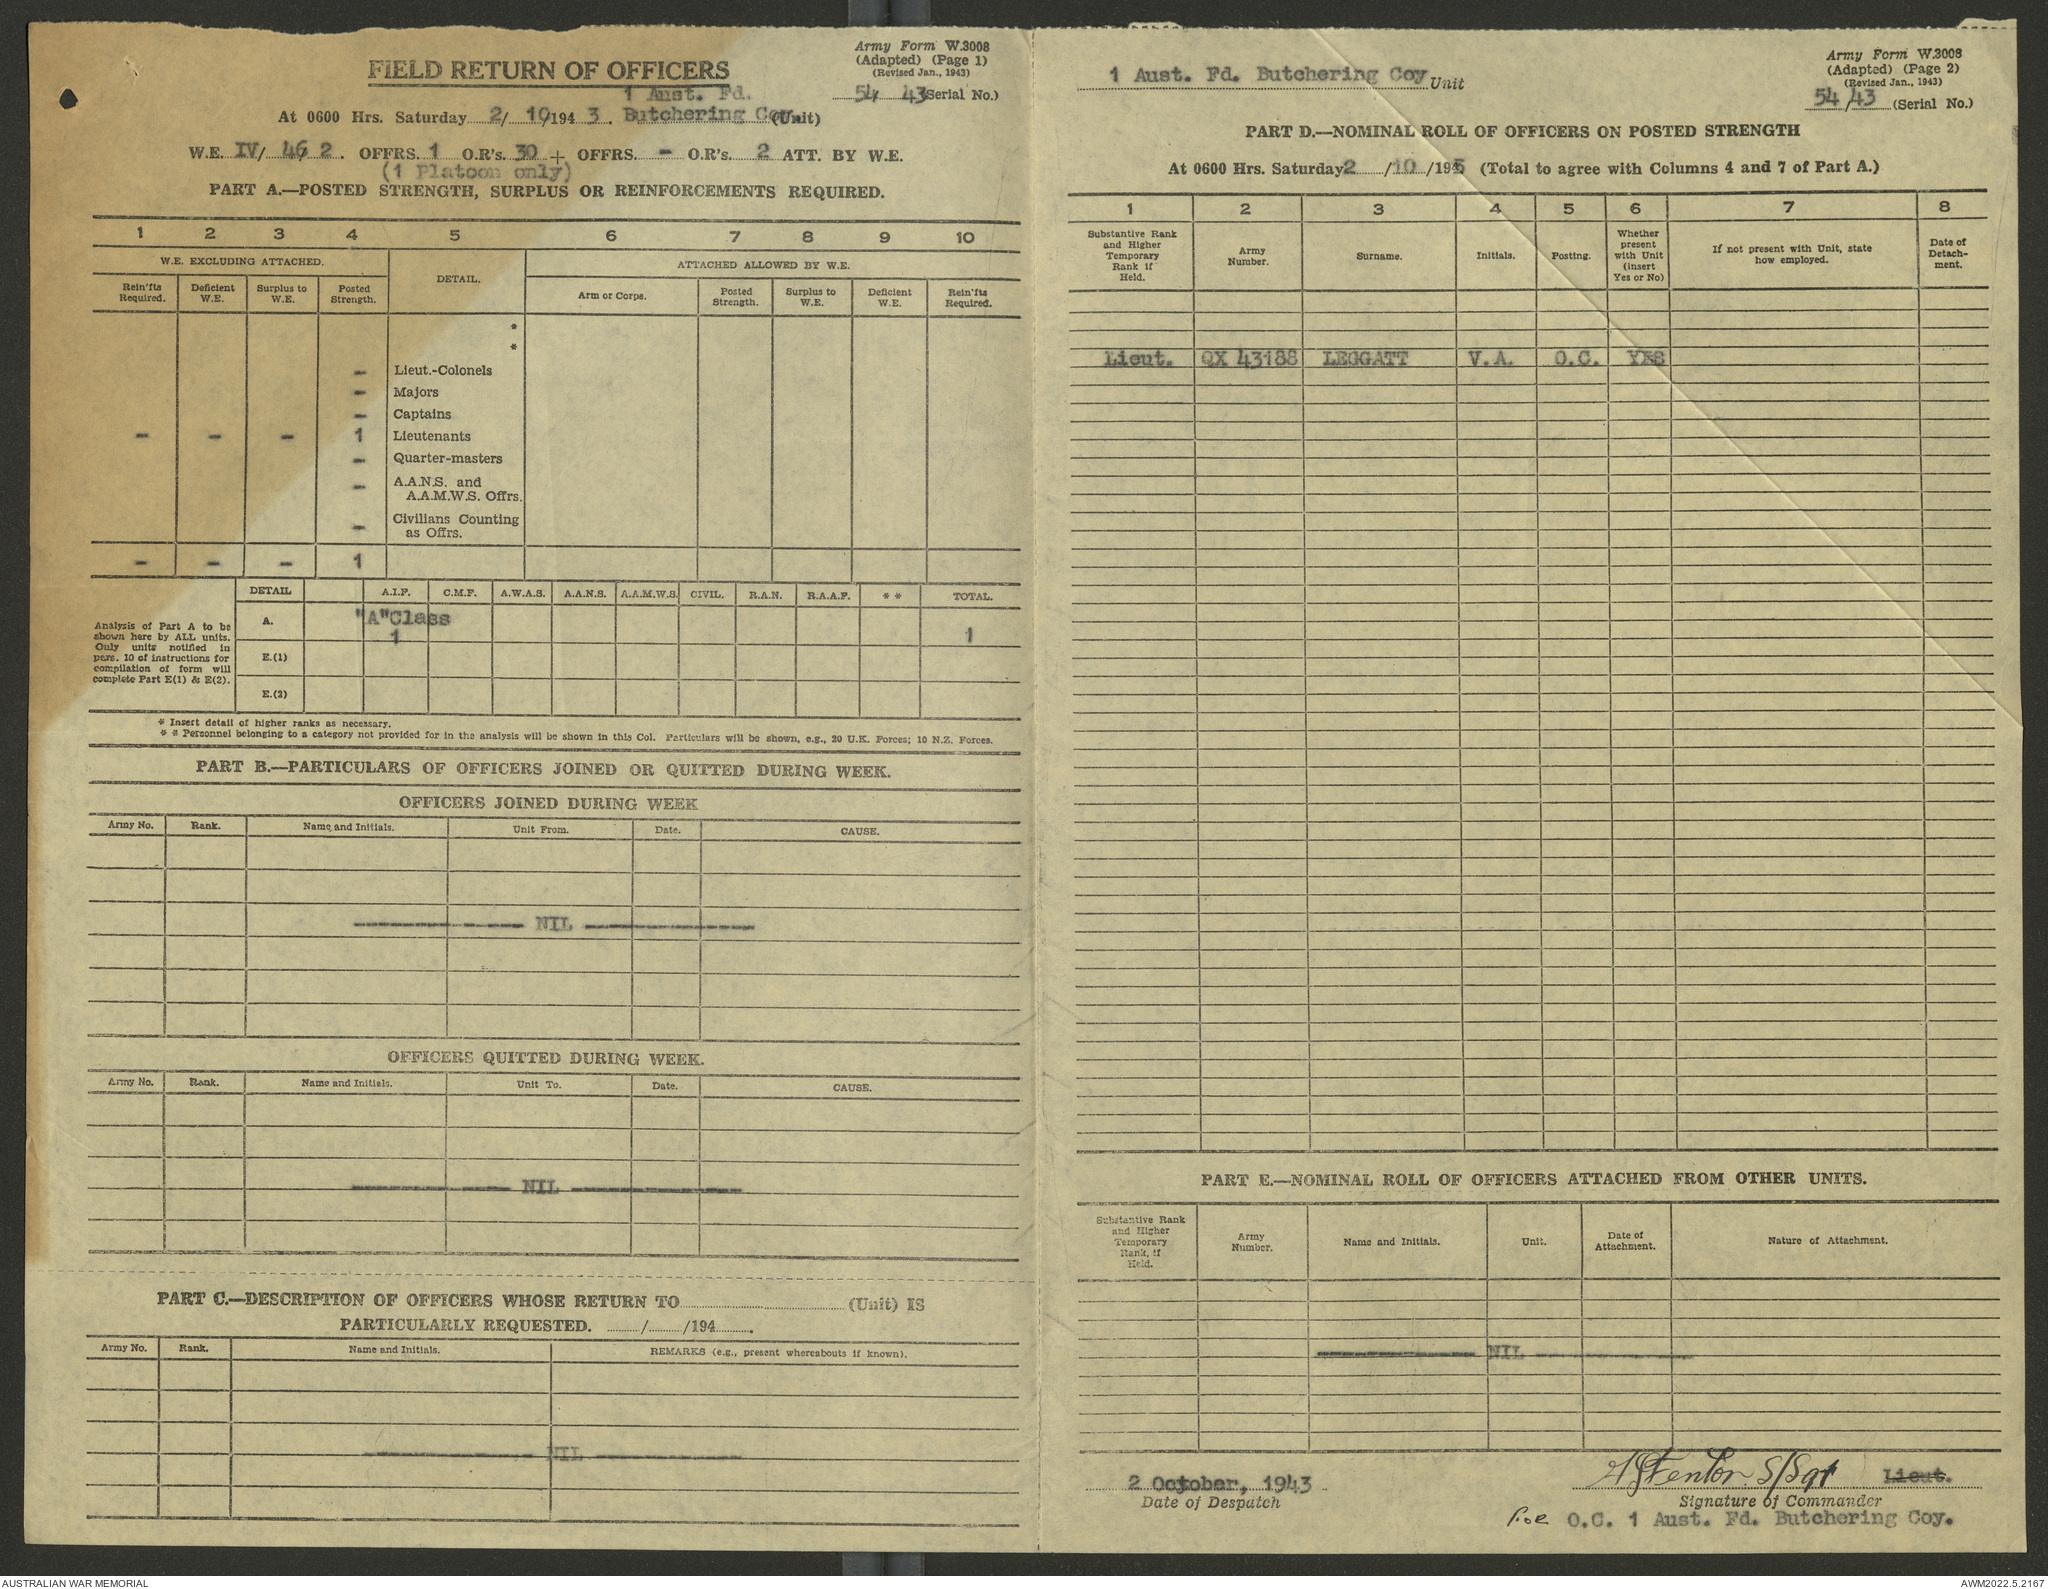 Army Form W.3008
(Adapted) (Page 1)
(Revised Jan., 1943)
FIELD RETURN OF OFFICERS
54 43 (Serial No.)
1 Aust. Fd.
At 0600 Hrs. Saturday 2/ 10/194 3. Butchering Coy. (Unit)
W.E. IV/ 46 2. OFFRS. 1 O.R's. 30 + OFFRS. - O.R's. 2 ATT. BY W.E.
(1 Platoon only)
PART A.—POSTED STRENGTH, SURPLUS OR REINFORCEMENTS REQUIRED.
1 2 3 4 5 6 7 8 9 10
W.E. EXCLUDING ATTACHED. DETAIL. ATTACHED ALLOWED BY W.E.
Rein'fts Required. Deficient W.E. Surplus to W.E. Posted Strength. Arm or Corps. Posted Strength. Surplus to W.E. Deficient W.E. Rein'fts Required.
*
*
- Lieut.-Colonels
- Majors
- Captains
- - - 1 Lieutenants
- Quarter-masters
- A.A.N.S. and
A.A.M.W.S. Offrs.
- Civilians Counting
as Offrs.
- - - 1
DETAIL A.I.F. C.M.F. A.W.A.S. A.A.N.S. A.A.M.W.S. CIVIL. R.A.N. R.A.A.F. * * TOTAL.
Analysis of Part A to be
shown here by ALL units.
Only units notified in
para. 10 of instructions for
compilation of form will
complete Part E(1) & E(2).
A. "A"Class
1 1
E.(1)
E.(2)
* Insert detail of higher ranks as necessary.
* * Personnel belonging to a category not provided for in the analysis will be shown in this Col. Particulars will be shown, e.g., 20 U.K. Forces; 10 N.Z. Forces.
PART B.—PARTICULARS OF OFFICERS JOINED OR QUITTED DURING WEEK.
OFFICERS JOINED DURING WEEK
Army No. Rank. Name and Initials. Unit From. Date. CAUSE.
NIL
OFFICERS QUITTED DURING WEEK.
Army No. Rank. Name and Initials. Unit To. Date. CAUSE.
NIL
PART C.—DESCRIPTION OF OFFICERS WHOSE RETURN TO (Unit) IS
PARTICULARLY REQUESTED. / /194 .
Army No. Rank. Name and Initials. REMARKS (e.g., present whereabouts if known).
NIL
Army Form W.3008
(Adapted) (Page 2)
(Revised Jan., 1943)
1 Aust. Fd. Butchering Coy Unit
54/43 (Serial No.)
PART D.—NOMINAL ROLL OF OFFICERS ON POSTED STRENGTH
At 0600 Hrs. Saturday 2 /10 /194 (Total to agree with Columns 4 and 7 of Part A.)
1 2 3 4 5 6 7 8
Substantive Rank and Higher Temporary Rank if Held. Army Number. Surname. Initials. Posting. Whether present with Unit (insert Yes or No) If not present with Unit, state how employed. Date of Detach-ment.
Lieut. QX 43188 LEGGATT V.A. O.C. YES
PART E.—NOMINAL ROLL OF OFFICERS ATTACHED FROM OTHER UNITS.
Substantive Rank and Higher Temporary Rank, if Held. Army Number. Name and Initials. Unit. Date of Attachment. Nature of Attachment.
NIL
2 October, 1943
Date of Despatch
Fenton S/Sgt Lieut.
Signature of Commander
For O.C. 1 Aust. Fd. Butchering Coy.
AUSTRALIAN WAR MEMORIAL
AWM2022.5.2167